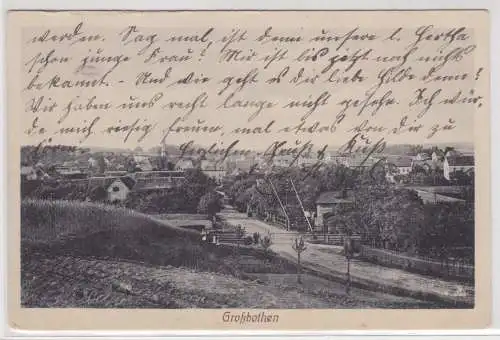 werden. Sag mal, ist denn unsere l. Hertha
schon junge Frau? Mir ist bis jetzt noch nichts
bekannt. – Und wie geht es dir liebe Hilde denn?
Wir haben uns recht lange nicht gesehen. Ich wür-
de mich riesig freuen, mal etwas von dir zu
Herzlichen Gruß & Kuß
Großbothen